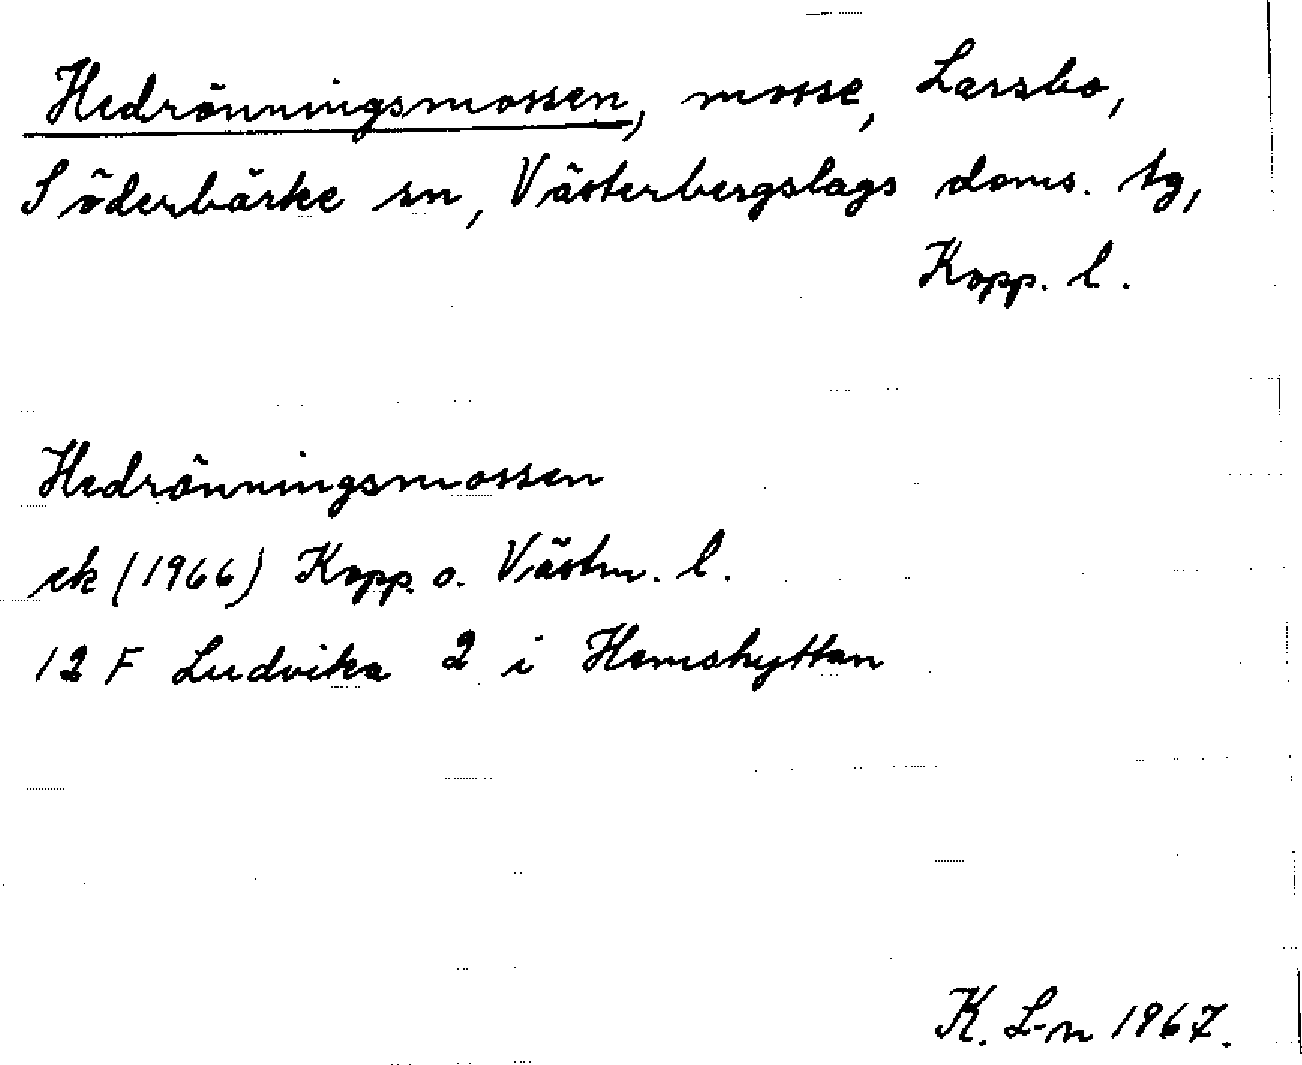 Hedrönningsmossen, mosse, Larsbo,
Söderbärke sn, Västerbergslags doms. tg,
Kopp. l.
Hedrönningsmossen
ek (1966) Kopp. o. Västm. l.
12 F Ludvika 2 i Hemshyttan
K. L-n 1967.